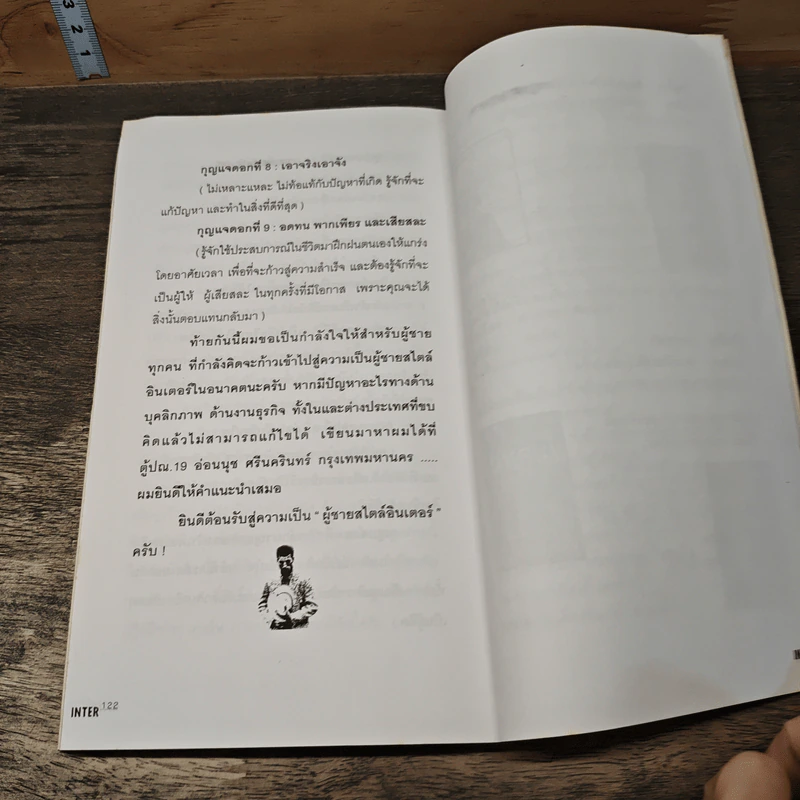 3
2
1
กุญแจดอกที่ 8 : เอาจริงเอาจัง
( ไม่เหลาะแหละ ไม่ท้อแท้กับปัญหาที่เกิด รู้จักที่จะ
แก้ปัญหา และทำในสิ่งที่ดีที่สุด )
กุญแจดอกที่ 9 : อดทน พากเพียร และเสียสละ
(รู้จักใช้ประสบการณ์ในชีวิตมาฝึกฝนตนเองให้แกร่ง
โดยอาศัยเวลา เพื่อที่จะก้าวสู่ความสำเร็จ และต้องรู้จักที่จะ
เป็นผู้ให้ ผู้เสียสละ ในทุกครั้งที่มีโอกาส เพราะคุณจะได้
สิ่งนั้นตอบแทนกลับมา )
ท้ายกันนี้ผมขอเป็นกำลังใจให้สำหรับผู้ชาย
ทุกคน ที่กำลังคิดจะก้าวเข้าไปสู่ความเป็นผู้ชายสไตล์
อินเตอร์ในอนาคตนะครับ หากมีปัญหาอะไรทางด้าน
บุคลิกภาพ ด้านงานธุรกิจ ทั้งในและต่างประเทศที่ขบ
คิดแล้วไม่สามารถแก้ไขได้ เขียนมาหาผมได้ที่
ตู้ปณ.19 อ่อนนุช ศรีนครินทร์ กรุงเทพมหานคร .....
ผมยินดีให้คำแนะนำเสมอ
ยินดีต้อนรับสู่ความเป็น " ผู้ชายสไตล์อินเตอร์ "
ครับ !
INTER 122